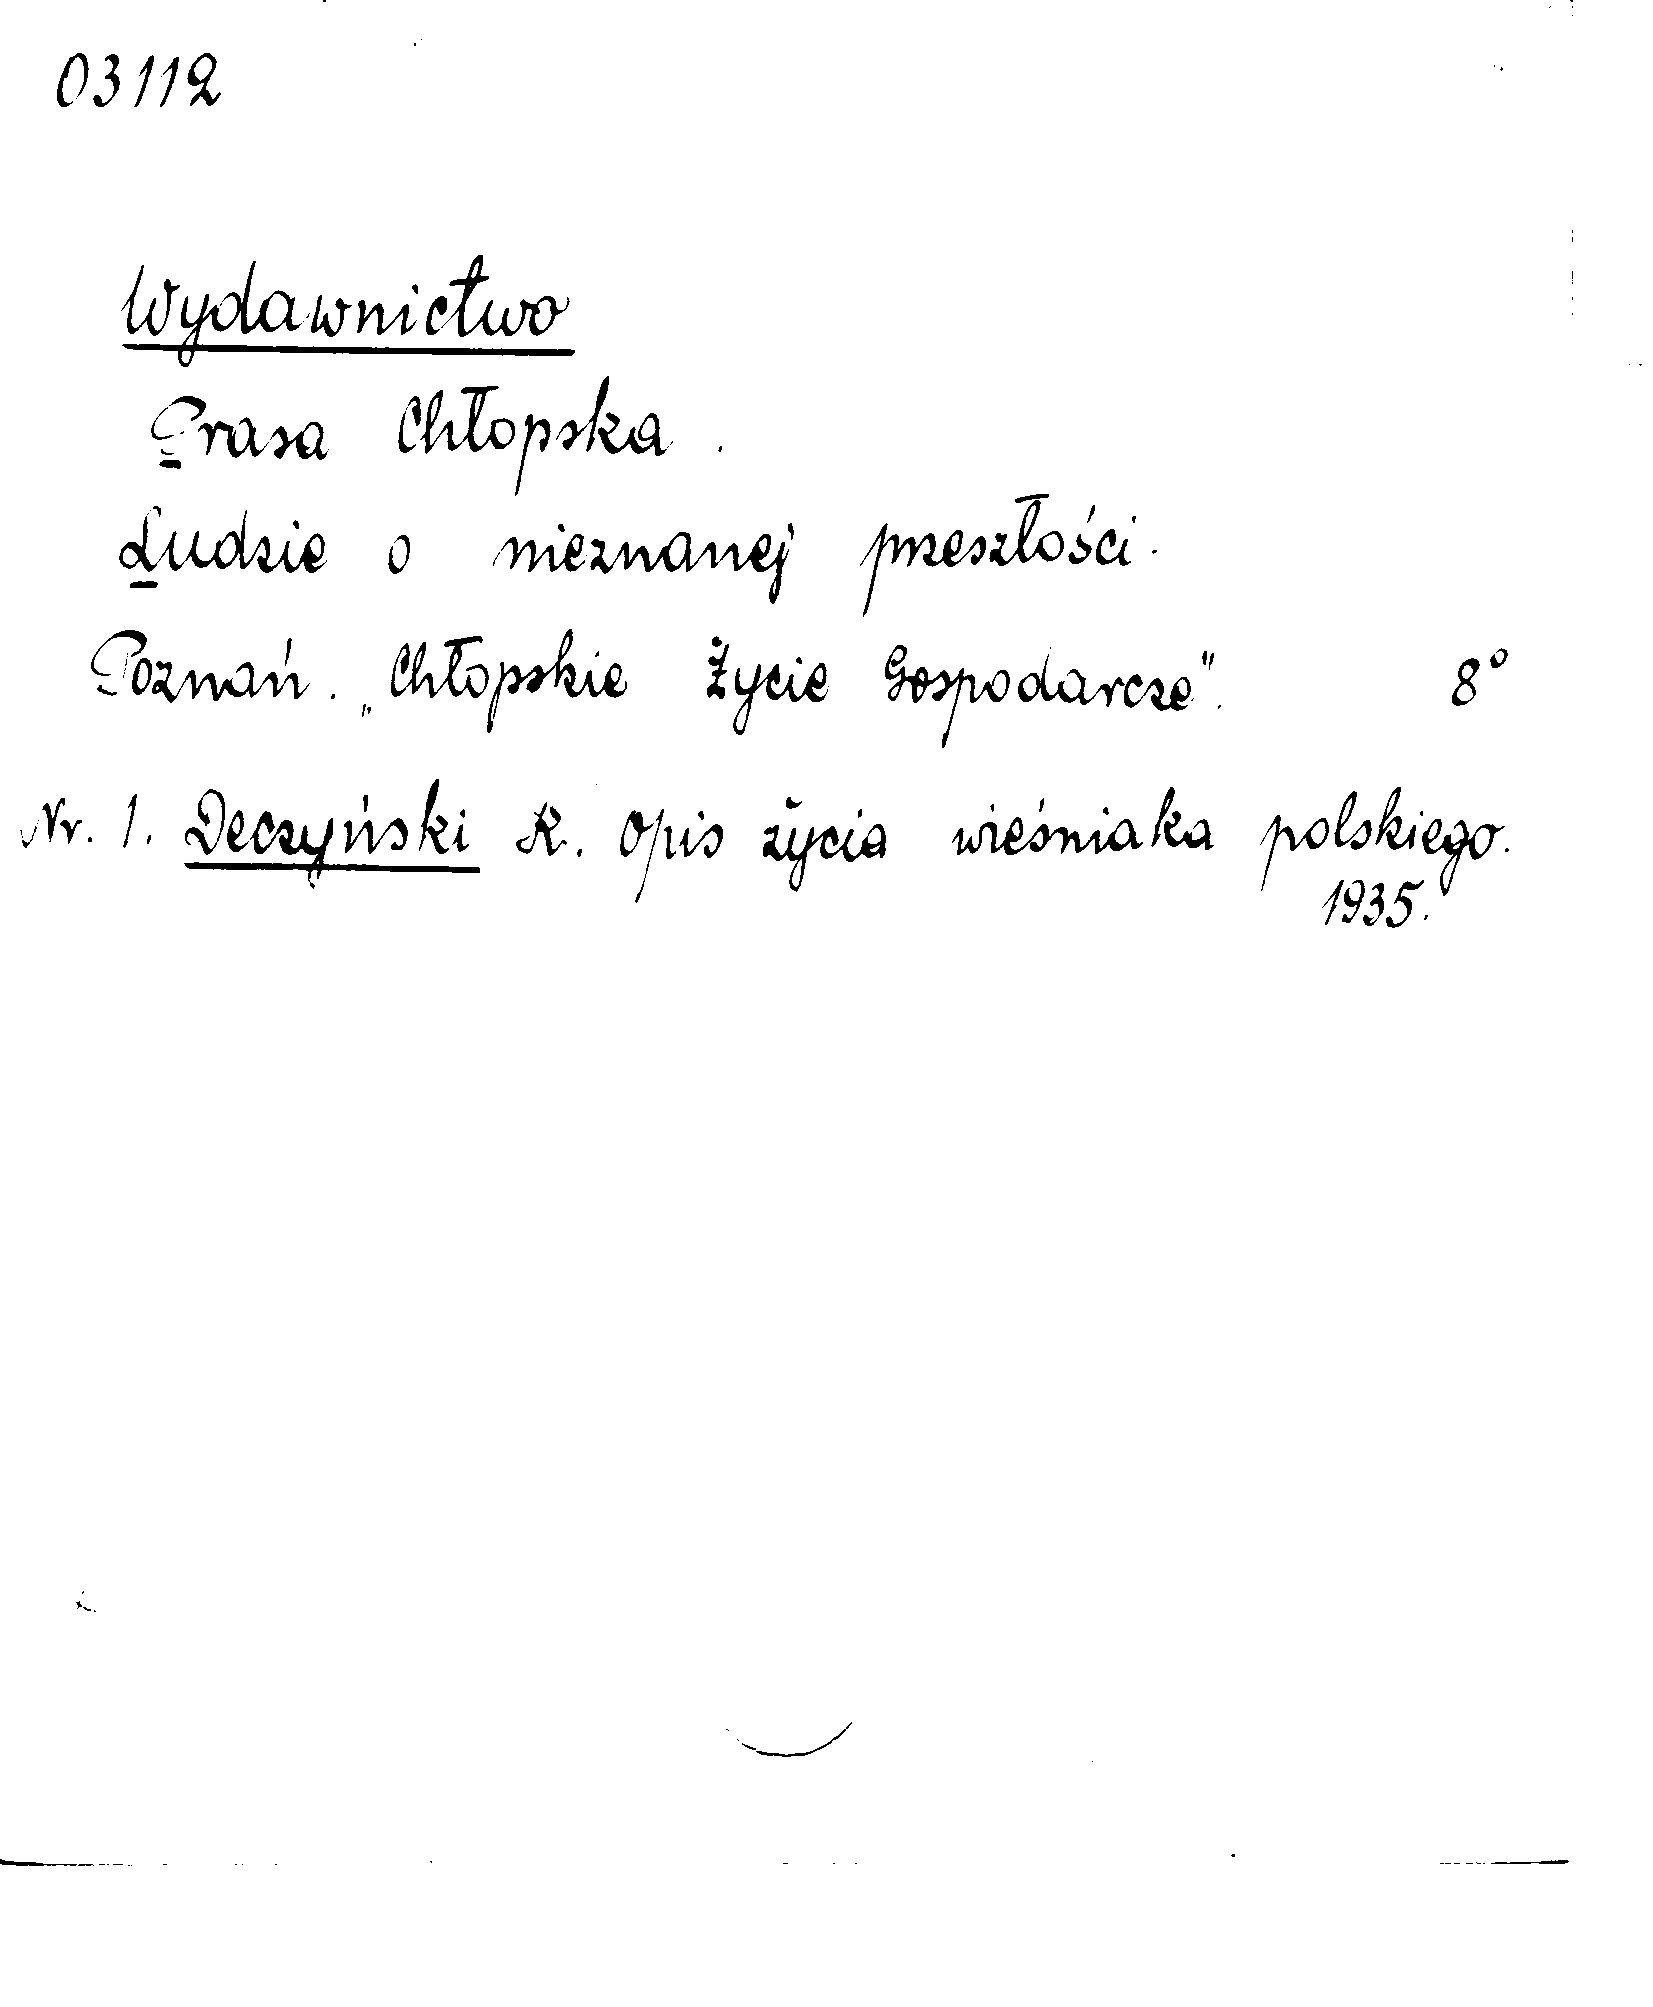 03112
Wydawnictwo
Prasa Chłopska.
Ludzie o nieznanej przeszłości.
Poznań. „Chłopskie Życie Gospodarcze". 8°
Nr. 1. Deczyński K. Opis życia wieśniaka polskiego.
1935.